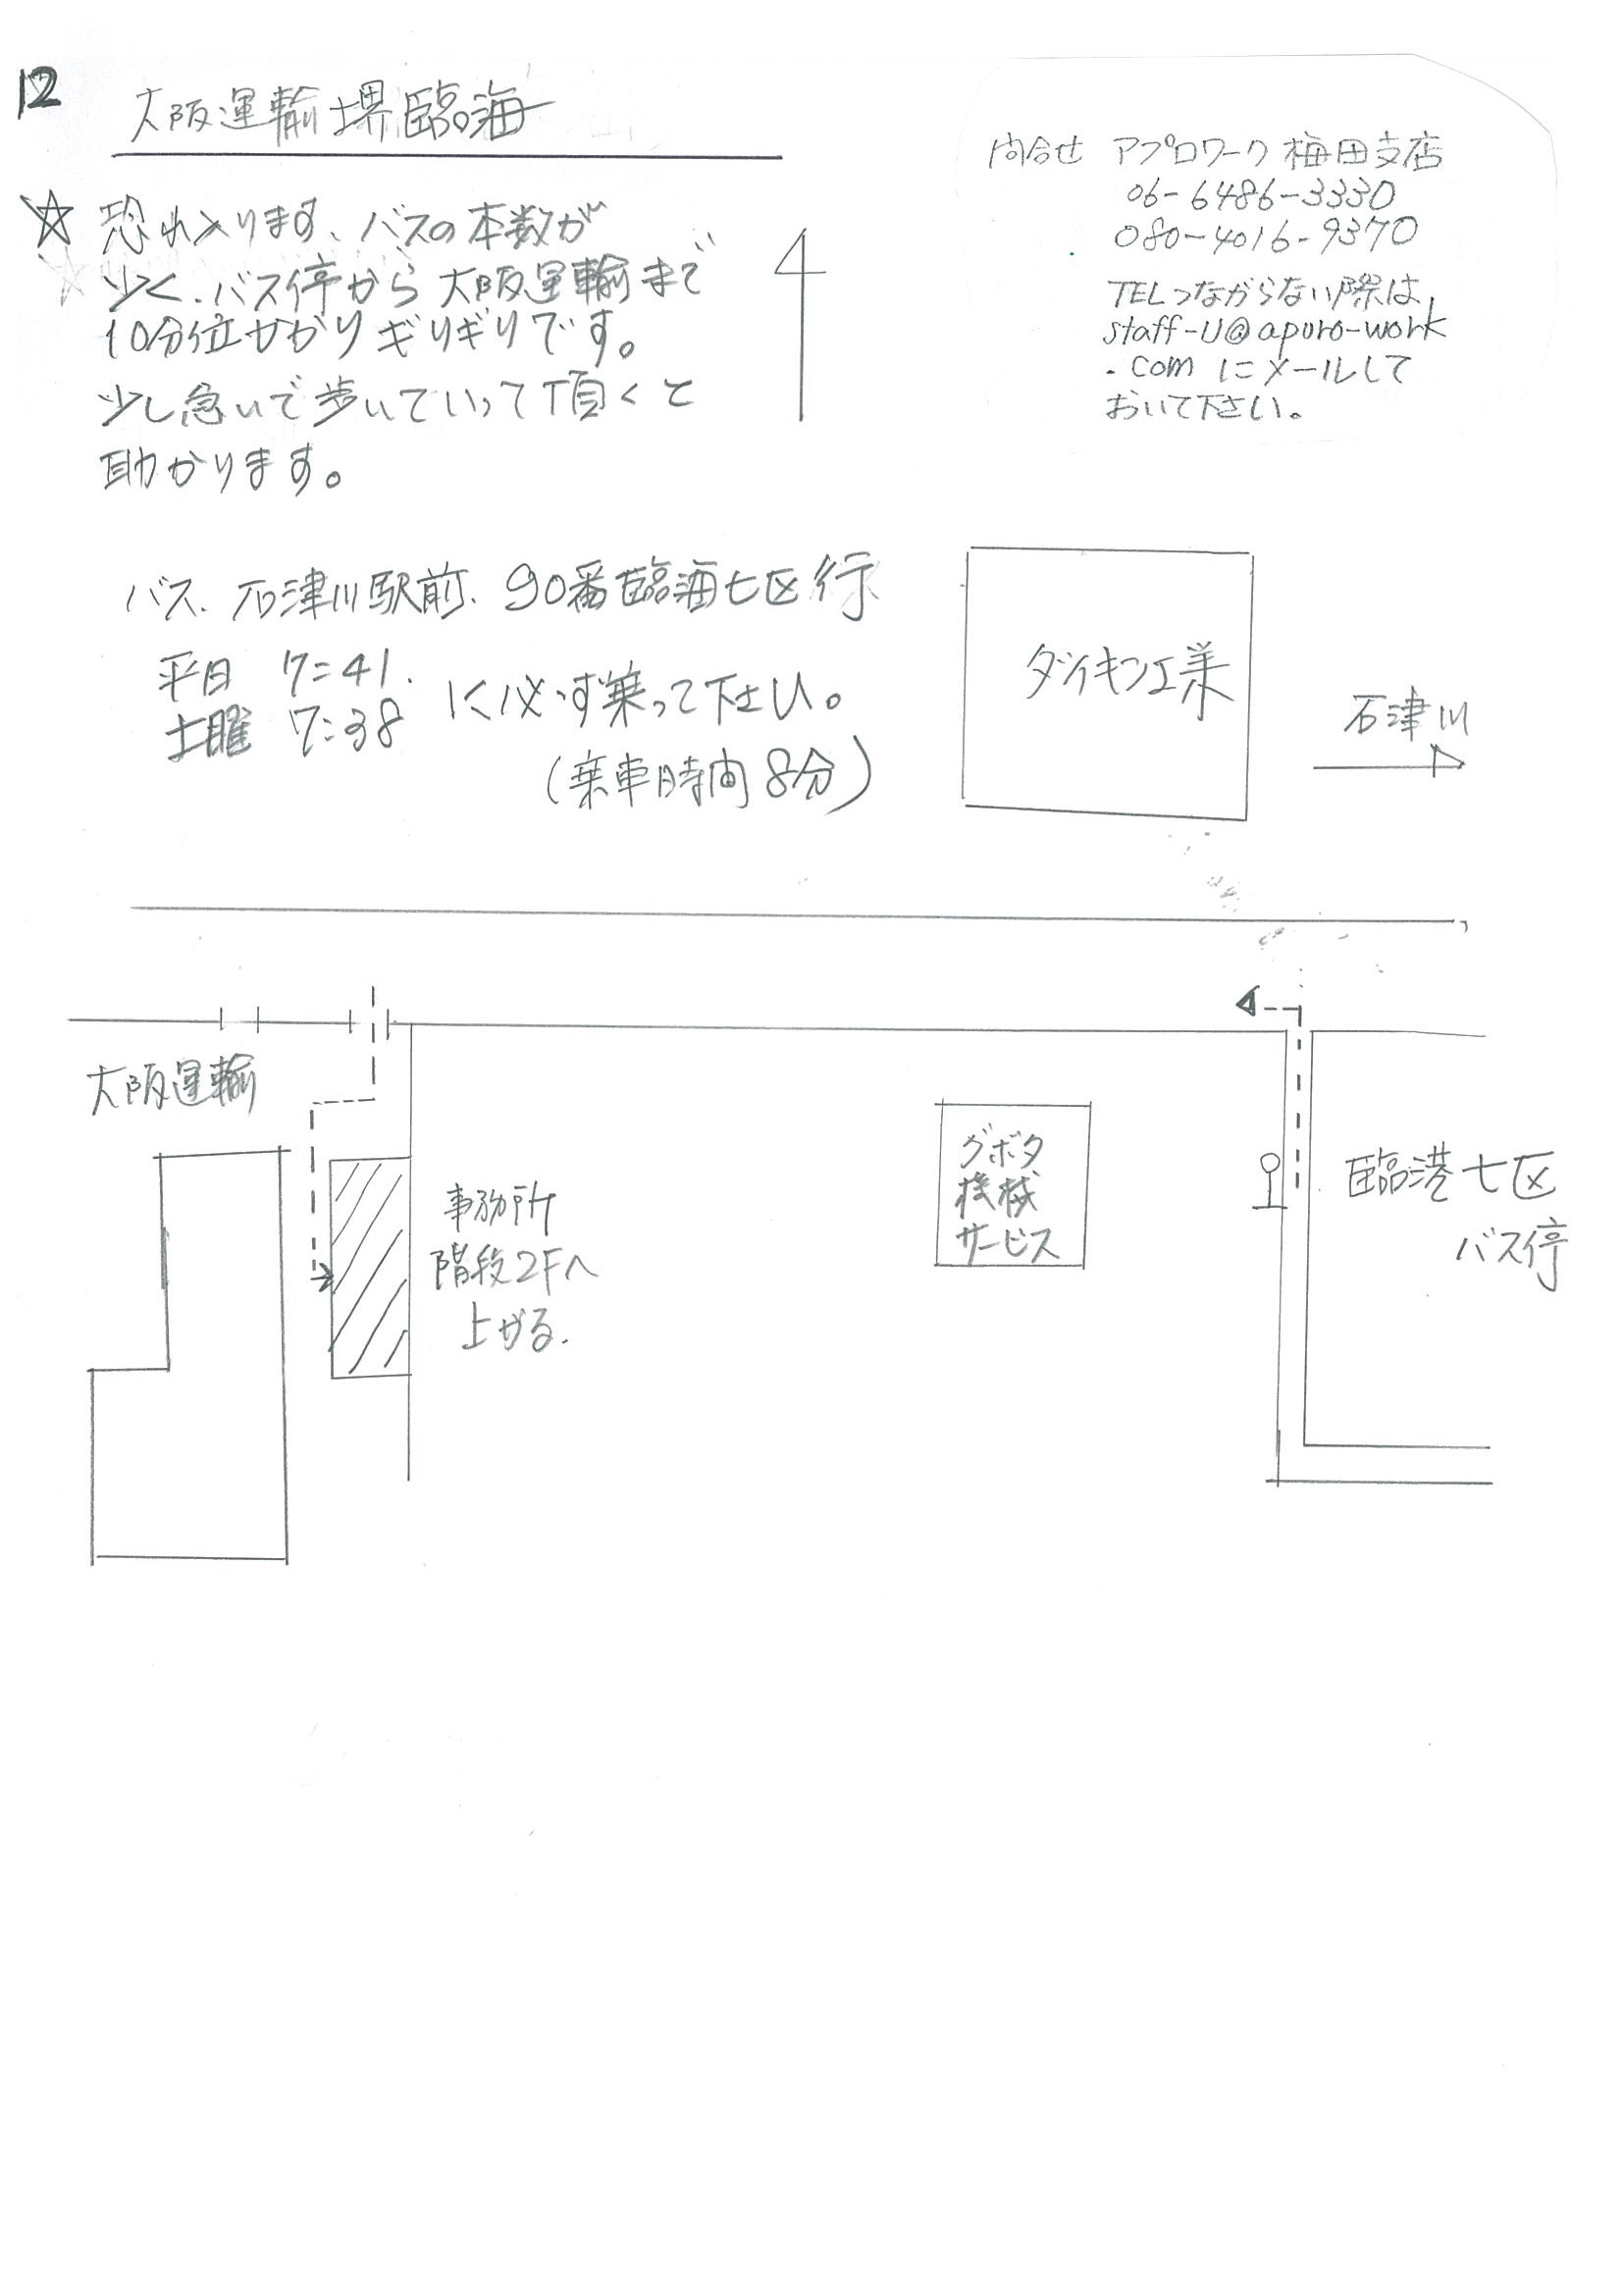 12
大阪運輸 堺臨海
☆ 恐れ入ります、バスの本数が
少く、バス停から大阪運輸まで
10分位かかりギリギリです。
少し急いで歩いていって頂くと
助かります。
問合せ アプロワーク梅田支店
06-6486-3330
080-4016-9370
TELつながらない際は、
staff-U@apuro-work
.com にメールして
おいて下さい。
バス、石津川駅前、90番臨海七区行
平日 7:41.
土曜 7:38
に必ず乗って下さい。
(乗車時間8分)
ダイキン工業
石津川
大阪運輸
事務所
階段2Fへ
上がる.
クボタ
機械
サービス
臨港七区
バス停